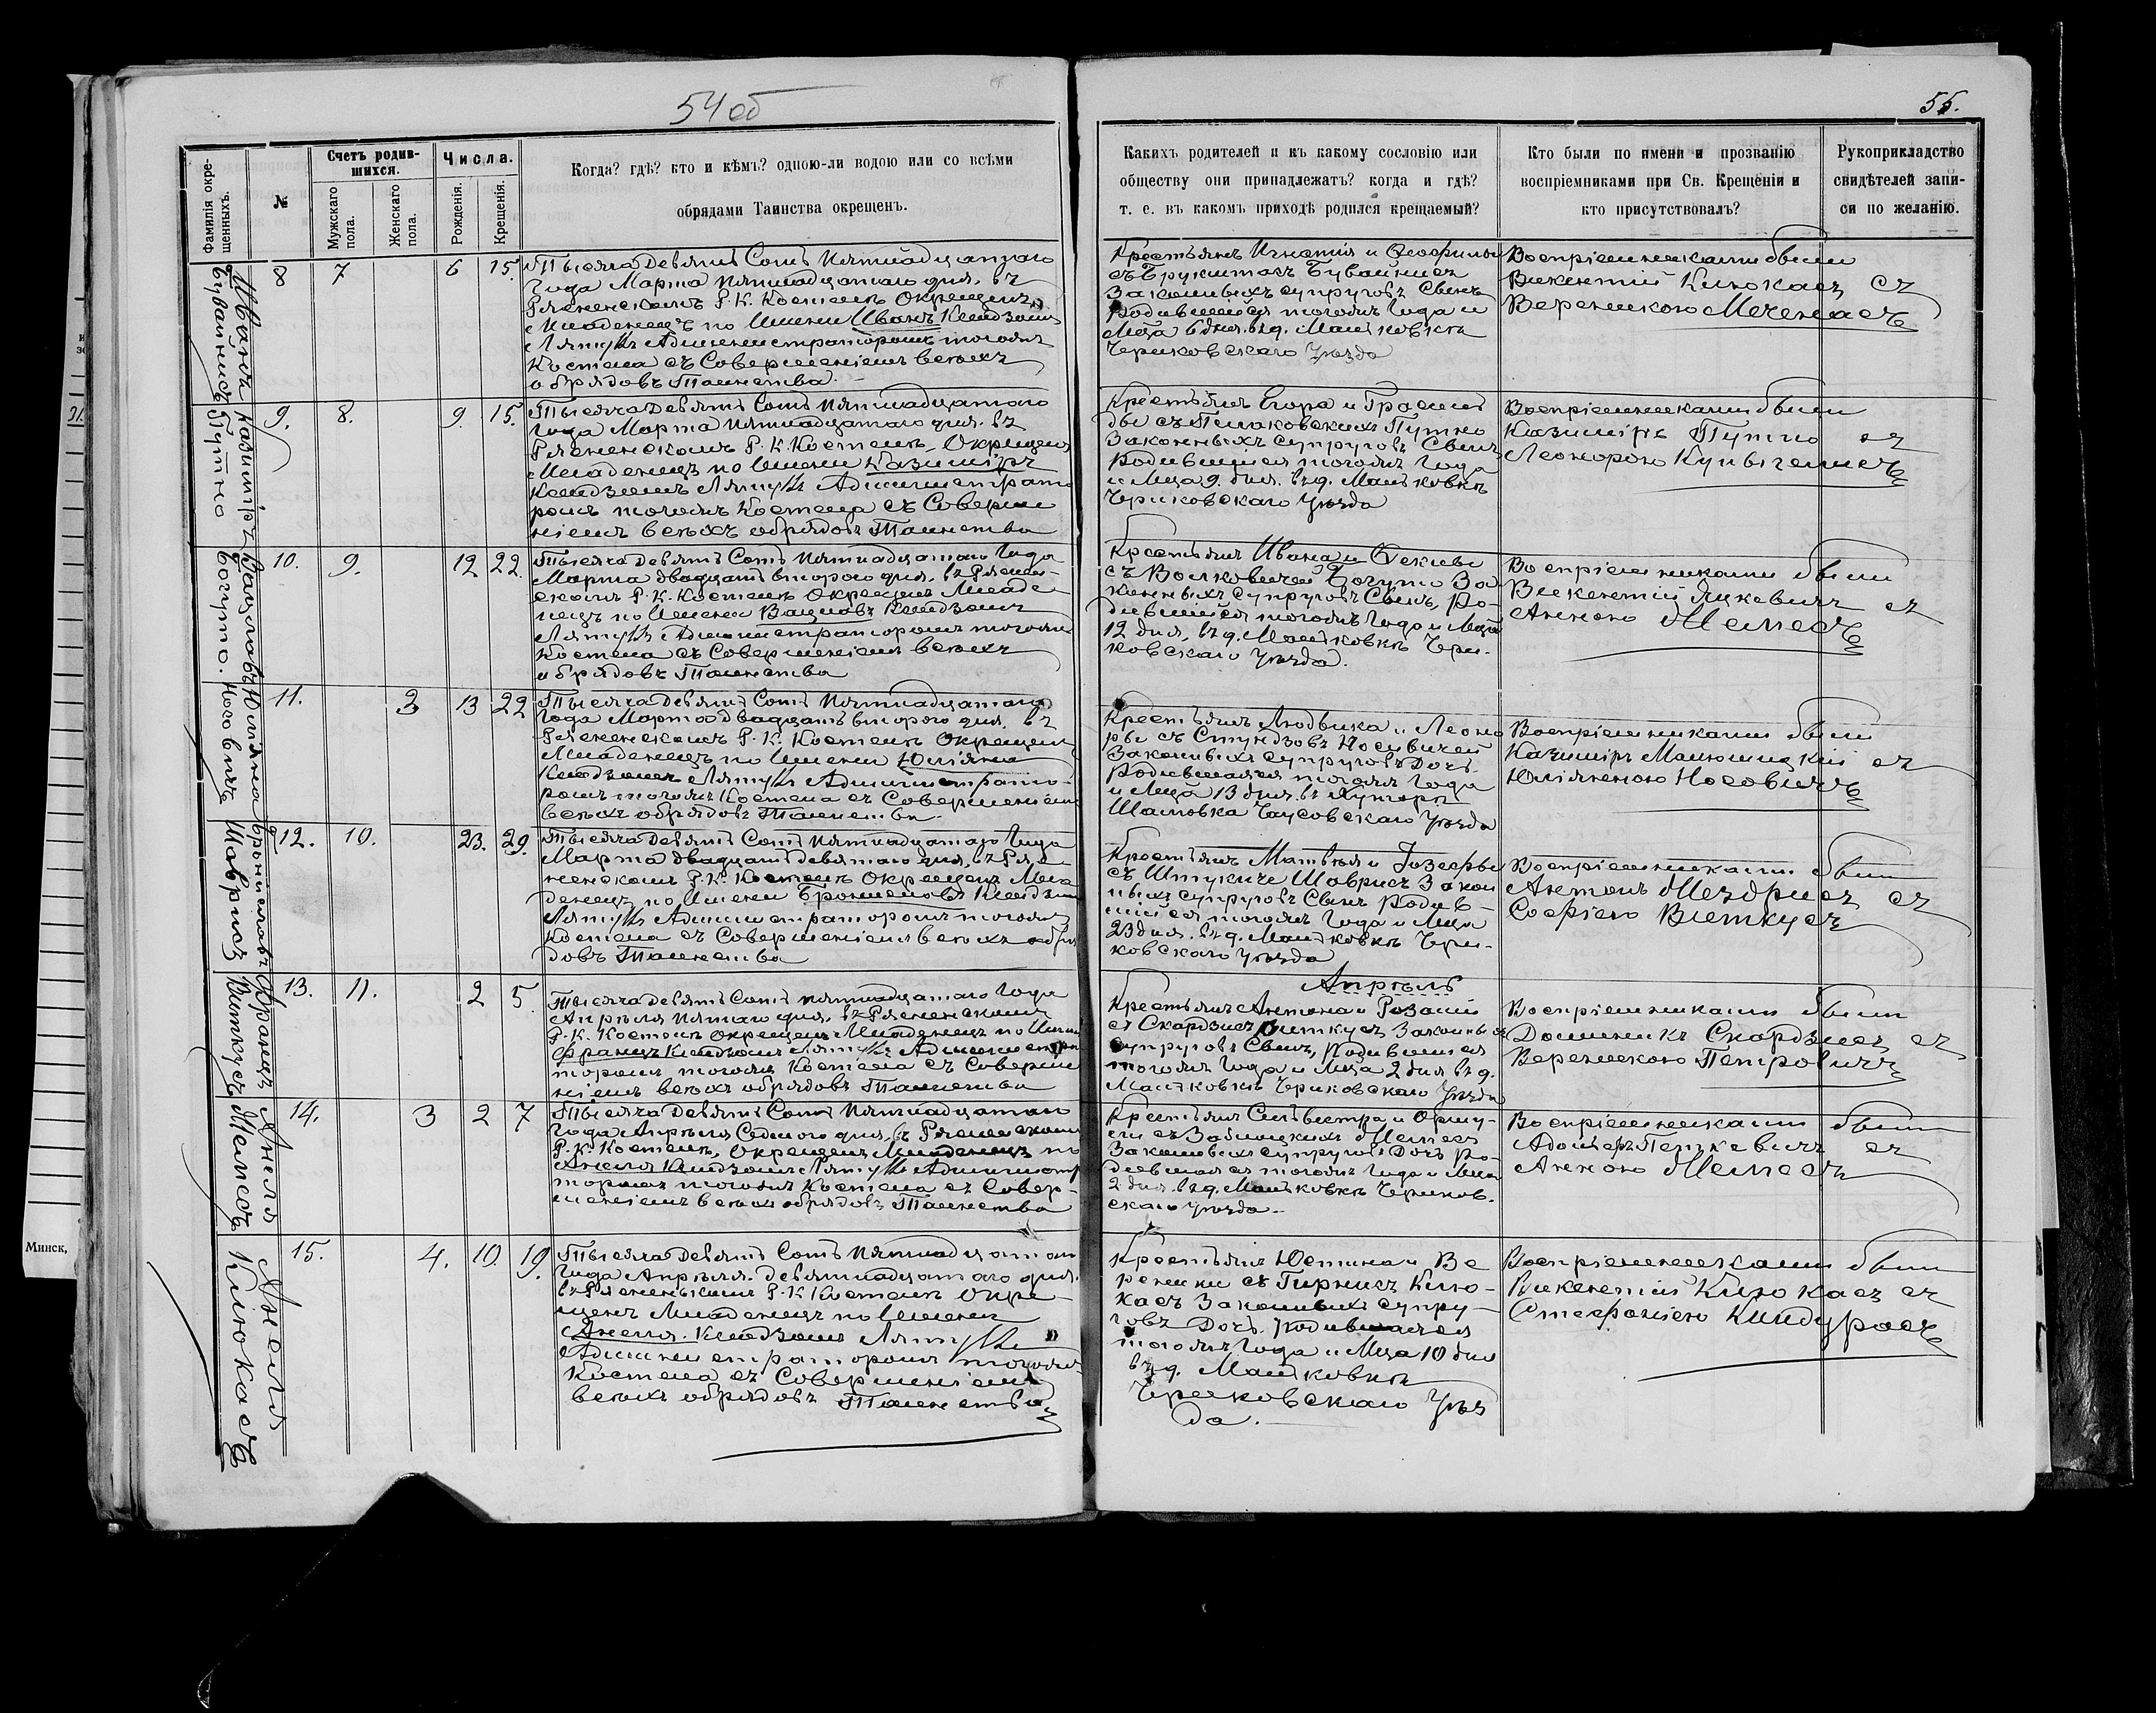 54 об
55.
Фамилія окре-
щенныхъ.
№
Счетъ родив-
шихся.
Мужскаго
пола.
Женскаго
пола.
Числа.
Рожденія.
Крещенія.
Когда? гдѣ? кто и кѣмъ? одною-ли водою или со всѣми
обрядами Таинства окрещенъ.
Какихъ родителей и къ какому сословію или
обществу они принадлежатъ? когда и гдѣ?
т. е. въ какомъ приходѣ родился крещаемый?
Кто были по имени и прозванію
воспріемниками при Св. Крещеніи и
кто присутствовалъ?
Рукоприкладство
свидѣтелей запи-
си по желанію.
Иванъ
Бувайнисъ
8 7 6 15.
Тысяча Девять Сотъ Пятнадцатаго
Года Марта пятнадцатаго дня, въ
Рясненскомъ Р. К. Костелѣ Окрещенъ
Младенецъ по Имени Иванъ Ксендзомъ
Администраторомъ тогожъ
Костела съ Совершеніемъ всѣхъ
обрядовъ Таинства.
Крестьянъ Игнатія и Феофилы
съ Брукштасъ Бувайнисъ
Законныхъ супруговъ Сынъ
Родившійся тогожъ Года и
Мца 6 дня. въ д. Матьковкѣ
Чериковскаго Уѣзда
Воспріемниками были
Викентій Клюкасъ съ
Вереникою Меченасъ
Казиміръ
Путно
9. 8. 9. 15.
Тысяча Девять Сотъ Пятнадцатаго
Года Марта пятнадцатаго дня. въ
Рясненскомъ Р. К. Костелѣ, Окрещенъ
Младенецъ по Имени Казиміръ
Ксендзомъ Администрато
ромъ тогожъ Костела съ Соверше
ніемъ всѣхъ обрядовъ Таинства
Крестьянъ Егора и
Путно
Законныхъ супруговъ Сынъ
Родившійся тогожъ Года
и Мца 9. дня. въ д. Матьковкѣ
Чериковскаго Уѣзда
Воспріемниками были
Казиміръ Путно съ
Леонорою
Вацлавъ
Богуто.
10. 9. 12 22.
Тысяча Девять Сотъ Пятнадцатаго Года
Марта двадцать второго дня, въ Ряснен-
скомъ Р. К. Костелѣ Окрещенъ Младе-
нецъ по Имени Вацлавъ Ксендзомъ
Администраторомъ тогожъ
Костела съ Совершеніемъ всѣхъ
обрядовъ Таинства
Крестьянъ Ивана и Феклы
съ Волковичей Богуто За-
конныхъ супруговъ Сынъ, Ро-
дившійся тогожъ Года и Мца
12 дня, въ д. Матьковкѣ Чери-
ковскаго Уѣзда.
Воспріемниками были
Викентій Яцкевичъ съ
Анною
Юліяна
Носовичъ
11. 2 13 22
Тысяча Девять Сотъ Пятнадцатаго
Года Марта двадцать второго дня, въ
Рясненскомъ Р. К. Костелѣ Окрещенъ
Младенецъ по Имени Юліяна
Ксендзомъ Администрато-
ромъ тогожъ Костела съ Совершеніемъ
всѣхъ обрядовъ Таинства.
Крестьянъ Людвика и Леоно
ры съ Носовичей
Законныхъ супруговъ Дочь
Родившаяся тогожъ Года
и Мца 13 дня. въ Хуторѣ
Чаусовскаго Уѣзда
Воспріемниками были
Казиміръ съ
Юліянною Носовичъ
Брониславъ
Шаврисъ
12. 10. 23. 29.
Тысяча Девять Сотъ Пятнадцатаго Года
Марта двадцать девятаго дня, въ Ряс
ненскомъ Р. К. Костелѣ Окрещенъ Мла
денецъ по Имени Брониславъ Ксендзомъ
Администраторомъ тогожъ
Костела съ Совершеніемъ всѣхъ обря
довъ Таинства
Крестьянъ Матвѣя и Іозефы
съ Шаврисъ Закон
ныхъ супруговъ Сынъ Родив-
шійся тогожъ Года и Мца
23 дня. въ д. Матьковкѣ Чери-
ковскаго Уѣзда
Воспріемниками были
Антонъ съ
Софіею Виткусъ
Апрѣль
Францъ
Виткусъ
13. 11. 2 5
Тысяча Девять Сотъ Пятнадцатаго Года
Апрѣля пятаго дня, въ Рясненскомъ
Р. К. Костелѣ Окрещенъ Младенецъ по Имени
Францъ Ксендзомъ Администра
торомъ тогожъ Костела съ Соверше
ніемъ всѣхъ обрядовъ Таинства
Крестьянъ Антона и Розаліи
съ Скардзисъ Виткусъ Законныхъ
супруговъ Сынъ, Родившійся
тогожъ Года и Мца 2 дня въ д.
Матьковкѣ Чериковскаго Уѣзда
Воспріемниками были
Доминикъ Скардзисъ съ
Веренекою Петровичъ
Анеля
14. 3 2 7
Тысяча Девять Сотъ Пятнадцатаго
Года Апрѣля Седмого дня, въ Рясненскомъ
Р. К. Костелѣ, Окрещенъ Младенецъ по
Анеля Ксендзомъ Администра
торомъ тогожъ Костела съ Совер-
шеніемъ всѣхъ обрядовъ Таинства
Крестьянъ Сильвестра и Оршу-
ли съ Заблоцкихъ
Законныхъ супруговъ Дочь Ро-
дившаяся тогожъ Года и Мца
2 дня. въ д. Матьковкѣ Чериков-
скаго Уѣзда.
Воспріемниками были
съ
Анною
Анеля
Клюкасъ
15. 4. 10. 19.
Тысяча Девять Сотъ Пятнадцатаго
Года Апрѣля. девятнадцатаго дня.
въ Рясненьскомъ Р. К. Костелѣ Окре-
щенъ Младенецъ по Имени
Анеля. Ксендзомъ
Администраторомъ тогожъ
Костела съ Совершеніемъ
всѣхъ обрядовъ Таинства
Крестьянъ Юстина и Ве
реники съ Гирнисъ Клю-
касъ Законныхъ супру-
говъ Дочь. Родившаяся
тогожъ Года и Мца 10 дня
въ д. Матьковкѣ
Чериковскаго Уѣз
да.
Воспріемниками были
Викентій Клюкасъ съ
Стефаніею Киндурасъ
Минск,